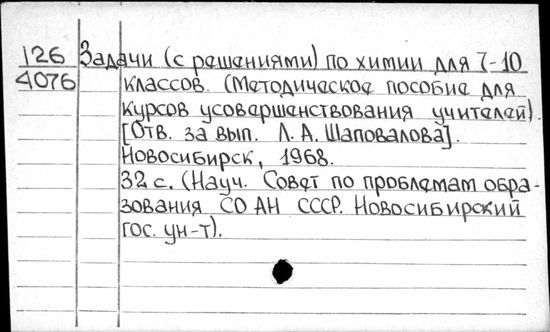 126 Задачи (с решениями) по химии для 7-10
4076 классов. (Методическое пособие для
курсов усовершенствования учителей).
[Отв. за вып. Л. А. Шаповалова].
Новосибирск, 1968.
32 с. (Науч. Совет по проблемам обра-
зования СО АН СССР. Новосибирский
гос. ун-т).